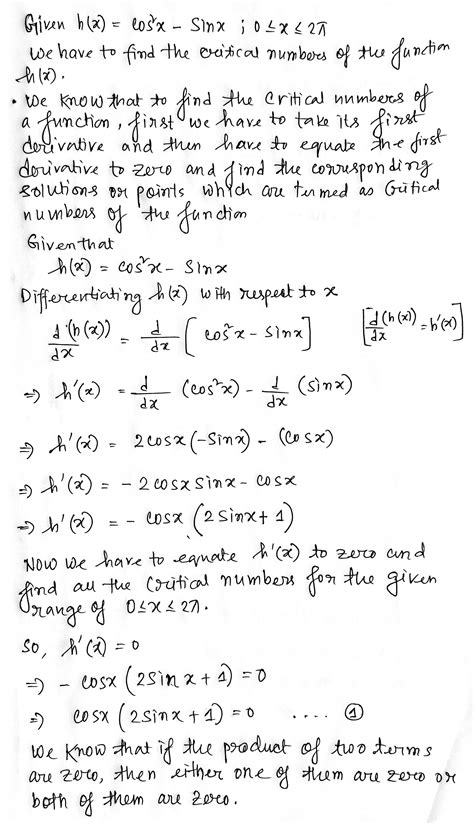 Given h(x) = cos²x - Sinx ; 0≤x≤2π
We have to find the critical numbers of the function
h(x).
• We know that to find the critical numbers of
a function, first we have to take its first
derivative and then have to equate the first
derivative to zero and find the corresponding
solutions or points which are termed as Critical
numbers of the function
Given that
h(x) = cos²x - Sinx
Differentiating h(x) with respect to x
d(h(x))/dx = d/dx [cos²x - sinx] [d(h(x))/dx = h'(x)]
⇒ h'(x) = d/dx (cos²x) - d/dx (sinx)
⇒ h'(x) = 2cosx(-Sinx) - (cosx)
⇒ h'(x) = - 2cosxsinx - cosx
⇒ h'(x) = - cosx (2Sinx+1)
Now we have to equate h'(x) to zero and
find all the critical numbers for the given
range of 0≤x≤2π.
So, h'(x) = 0
⇒ - cosx (2Sinx+1) = 0
⇒ cosx (2Sinx+1) = 0 .... ①
We know that if the product of two terms
are zero, then either one of them are zero or
both of them are zero.